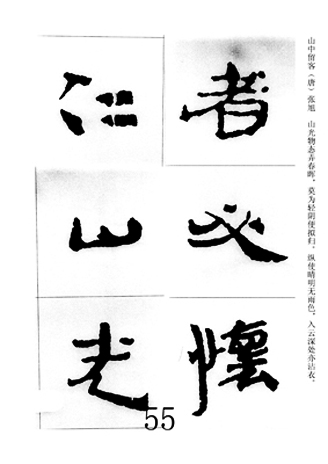 山中留客（唐）张旭　山光物态弄春晖，莫为轻阴便拟归。纵使晴明无雨色，入云深处亦沾衣。
者必懷
仁山光
55